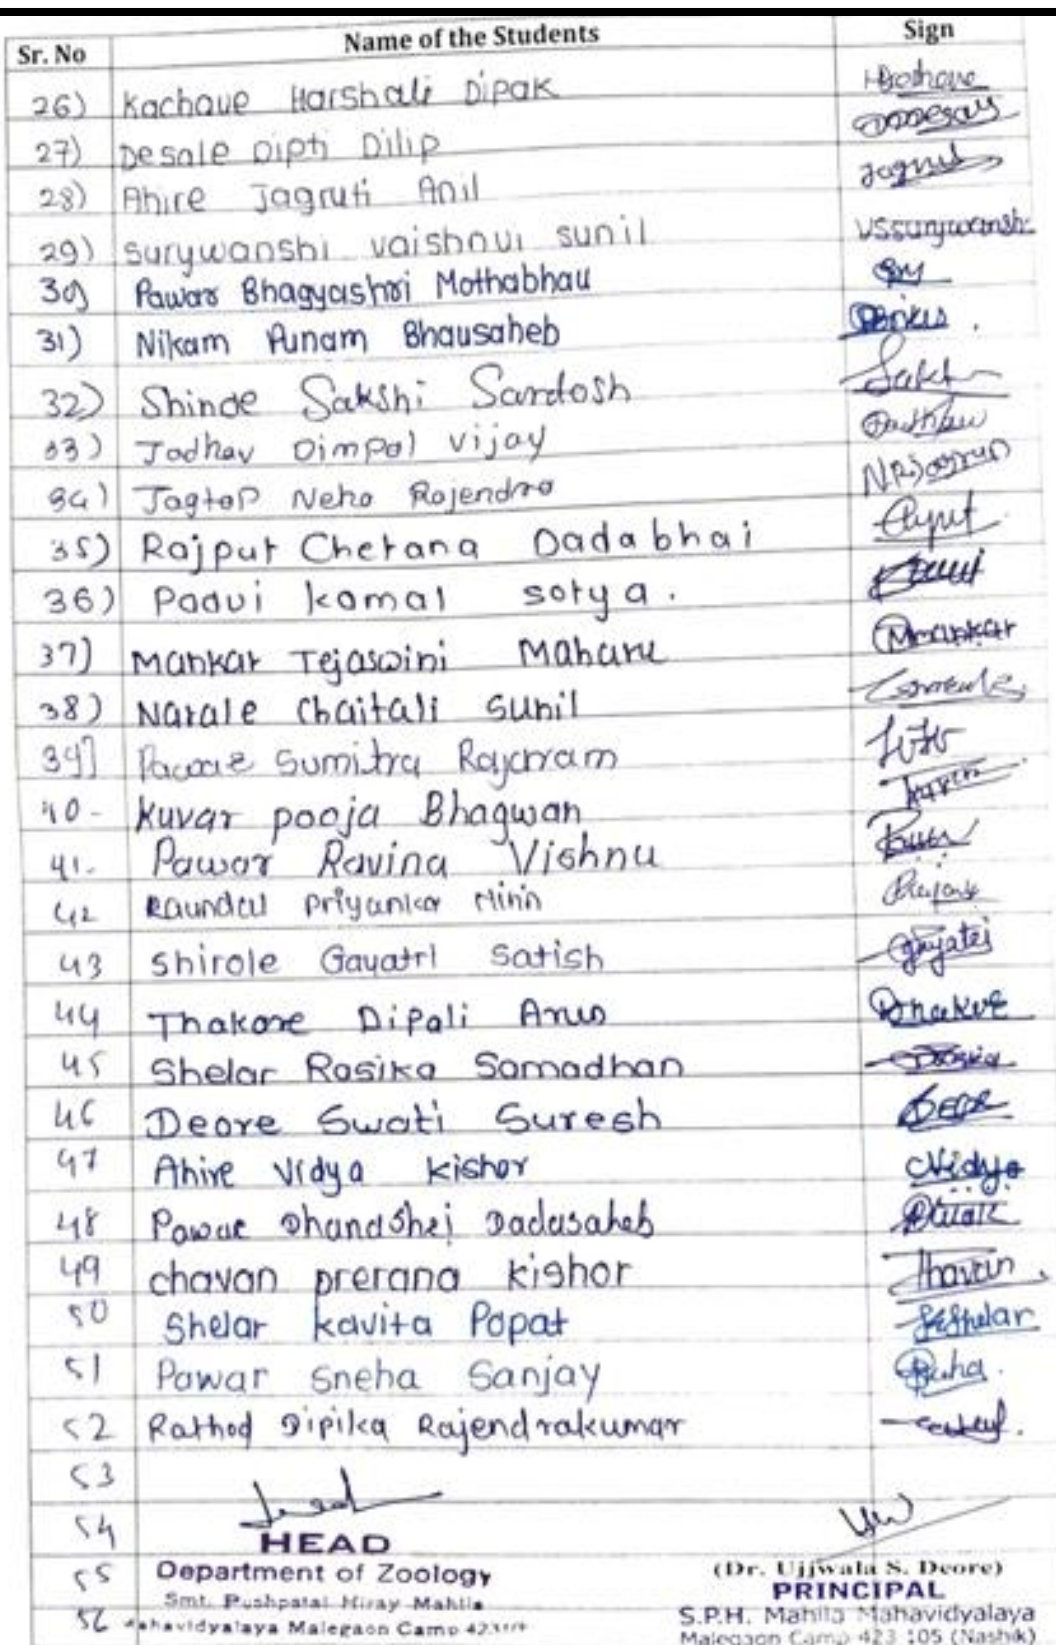 Sr. No Name of the Students Sign
26) Kachave Harshali Dipak
27) Desale Dipti Dilip
28) Ahire Jagruti Anil Jagruti
29) Surywanshi vaishnvi sunil VSsurywansh
30) Pawar Bhagyashri Mothabhau
31) Nikam Punam Bhausaheb
32) Shinde Sakshi Santosh Sakshi
33) Jadhav Dimpal Vijay
34) Jagtap Neha Rajendra
35) Rajput Chetana Dadabhai
36) Padvi kamal sotya.
37) Mankar Tejaswini Maharu Mankar
38) Narale Chaitali Sunil
39) Pawar Sumitra Rajaram
40- Kuvar pooja Bhagwan
41- Pawar Ravina Vishnu
42 Raundal Priyanka
43 Shirole Gayatri Satish Gayatri
44 Thakare Dipali Arun
45 Shelar Rasika Samadhan
46 Deore Swati Suresh Deore
47 Ahire Vidya kishor Vidya
48 Pawar Dhandshri Dadasaheb
49 chavan prerana kishor
50 Shelar kavita Popat
51 Pawar Sneha Sanjay
52 Rathod Dipika Rajendrakumar
53
54
HEAD
55 Department of Zoology (Dr. Ujjwala S. Deore)
PRINCIPAL
Smt. Pushpatai Hiray Mahila
56 Mahavidyalaya Malegaon Camp S.P.H. Mahila Mahavidyalaya
Malegaon Camp 423 105 (Nashik)